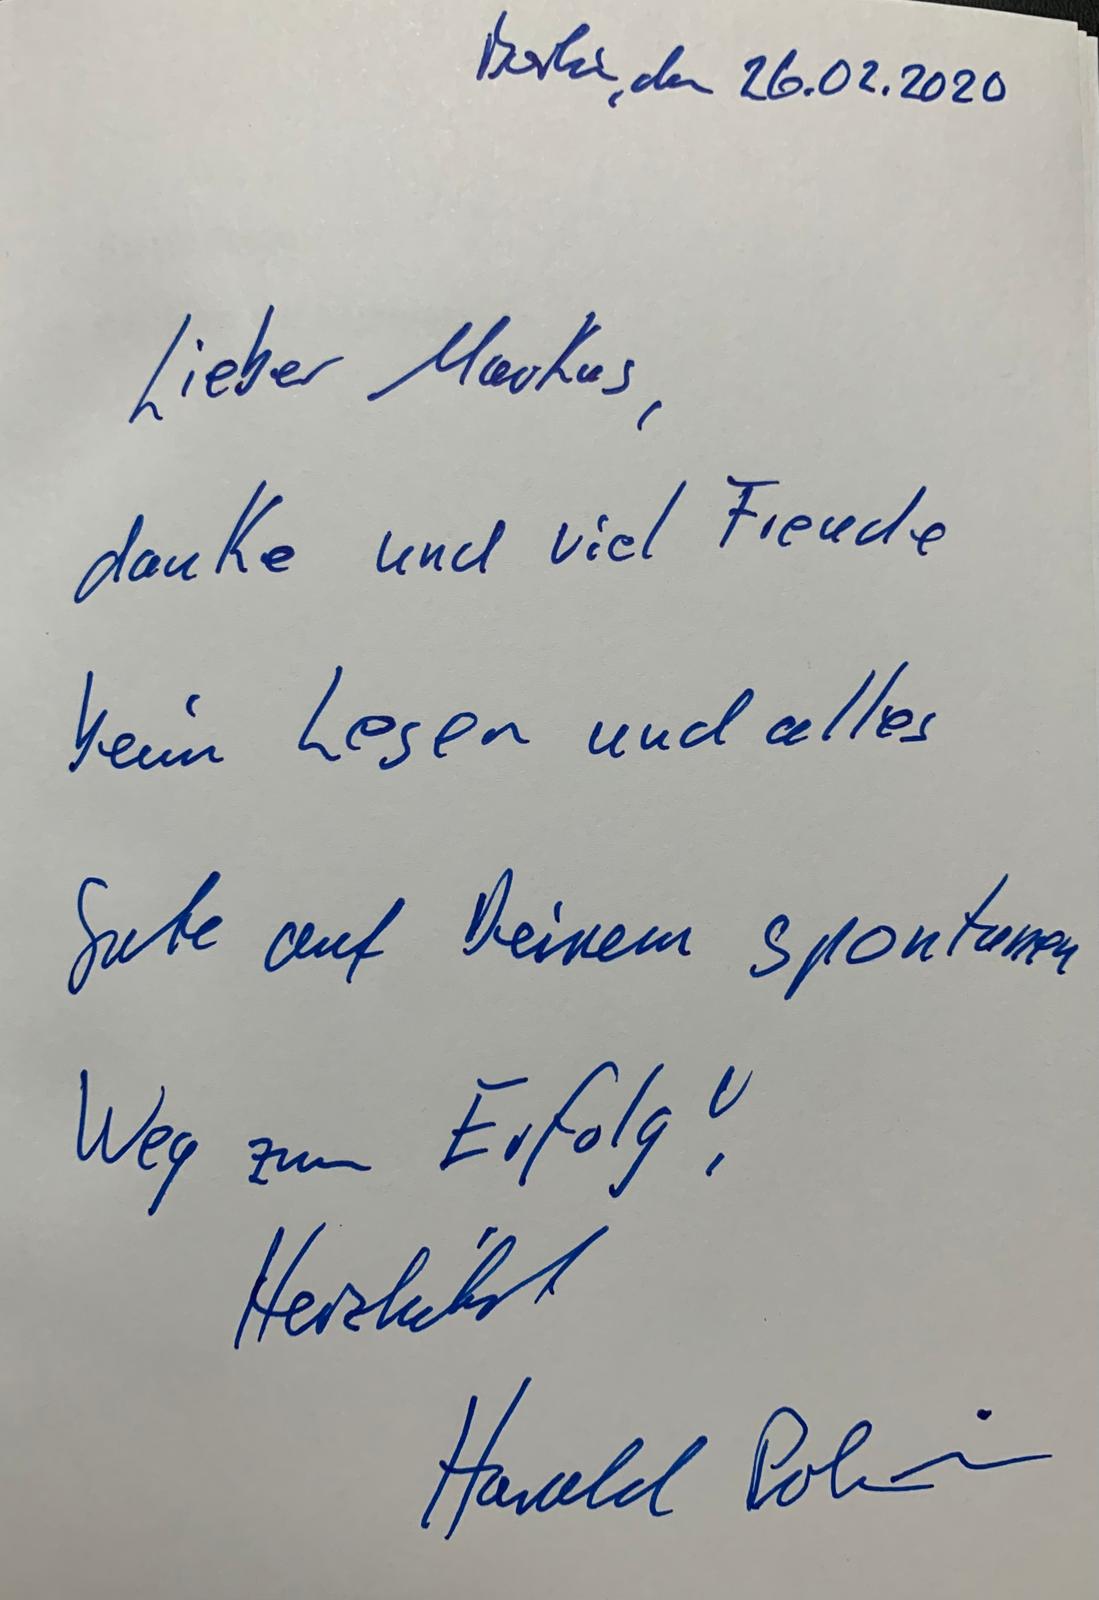 Berlin, den 26.02.2020
Lieber Markus,
danke und viel Freude
beim Lesen und alles
Gute auf Deinem spontanen
Weg zum Erfolg!
Herzlichst
Harald